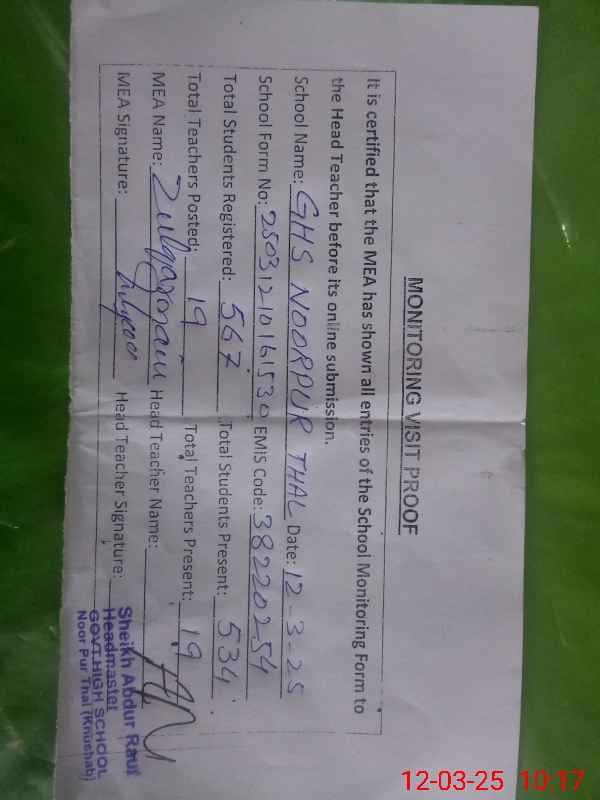 MONITORING VISIT PROOF
It is certified that the MEA has shown all entries of the School Monitoring Form to
the Head Teacher before its online submission.
School Name: GHS NOORPUR THAL Date: 12-3-25
School Form No: 25031210161530 EMIS Code: 38220254
Total Students Registered: 567 Total Students Present: 534
Total Teachers Posted: 19 Total Teachers Present: 19
MEA Name: Zulqarnain Head Teacher Name:
MEA Signature: Head Teacher Signature:
Sheikh Abdur Rauf
Headmaster
GOVT.HIGH SCHOOL
Noor Pur Thal (Khushab)
12-03-25 10:17